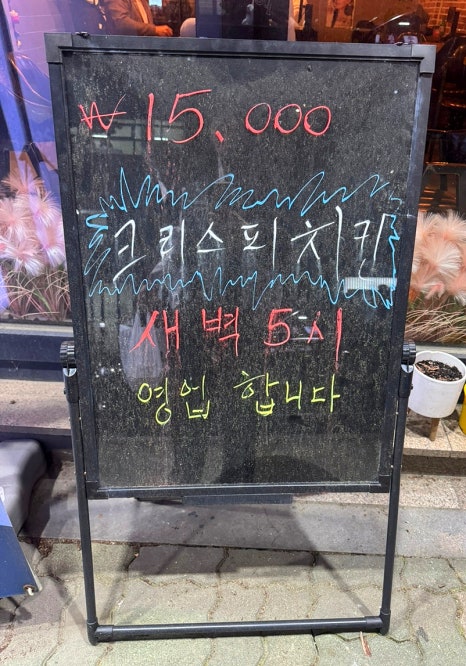 ₩15,000
크리스피치킨
새벽 5시
영업 합니다